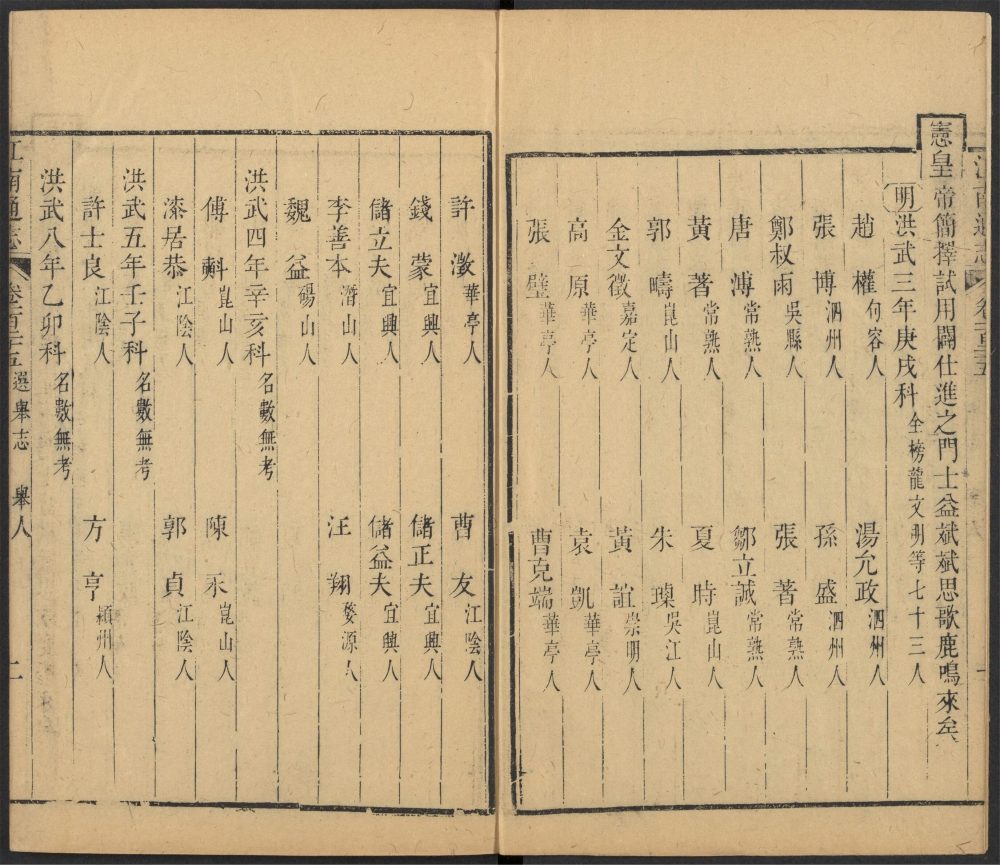 憲皇帝簡擇試用闢仕進之門士益斌斌思歌鹿鳴來矣
明洪武三年庚戌科 全榜龍文明等七十三人
趙權 句容人 湯允政 泗州人
張博 泗州人 孫盛 泗州人
鄭叔雨 吳縣人 張著 常熟人
唐溥 常熟人 鄒立誠 常熟人
黃著 常熟人 夏時 崑山人
郭疇 崑山人 朱璨 吳江人
金文徵 嘉定人 黃誼 崇明人
高原 華亭人 袁凱 華亭人
張璧 華亭人 曹克端 華亭人
許澂 華亭人 曹友 江陰人
錢蒙 宜興人 儲正夫 宜興人
儲立夫 宜興人 儲益夫 宜興人
李善本 潛山人 汪翔 婺源人
魏益 碭山人
洪武四年辛亥科 名數無考
傅斛 崑山人 陳永 崑山人
漆居恭 江陰人 郭貞 江陰人
洪武五年壬子科 名數無考
許士良 江陰人 方亨 潁州人
洪武八年乙卯科 名數無考
江南通志 卷一百二十五 選舉志 舉人 二